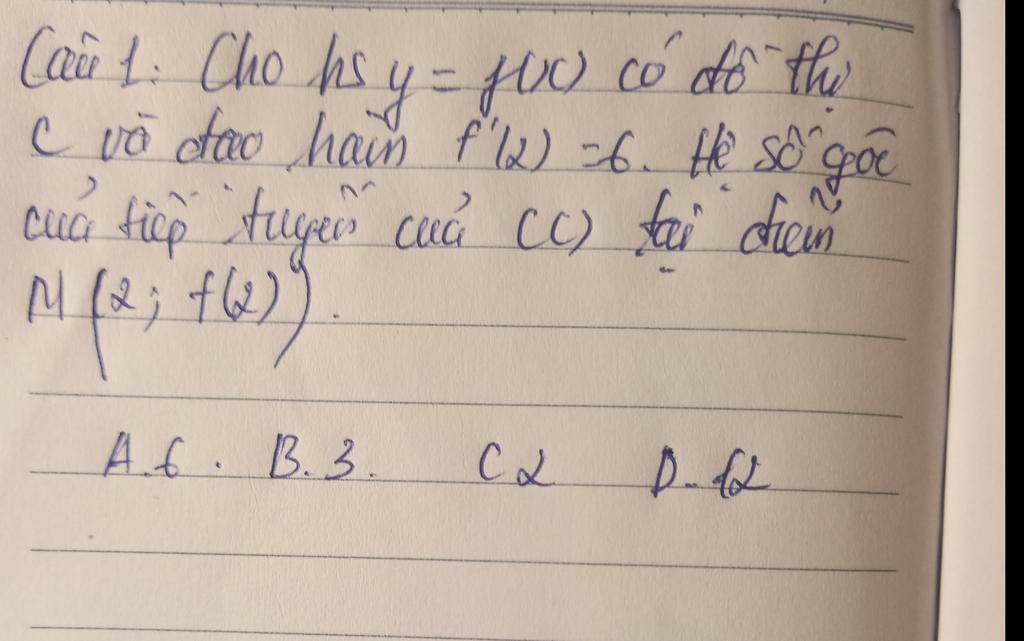 Câu 1: Cho hs y = f(x) có đồ thị
C và đạo hàm f'(2) = 6. Hệ số góc
của tiếp tuyến của (C) tại điểm
M (2; f(2)).
A. 6. B. 3. C 2 D. 12